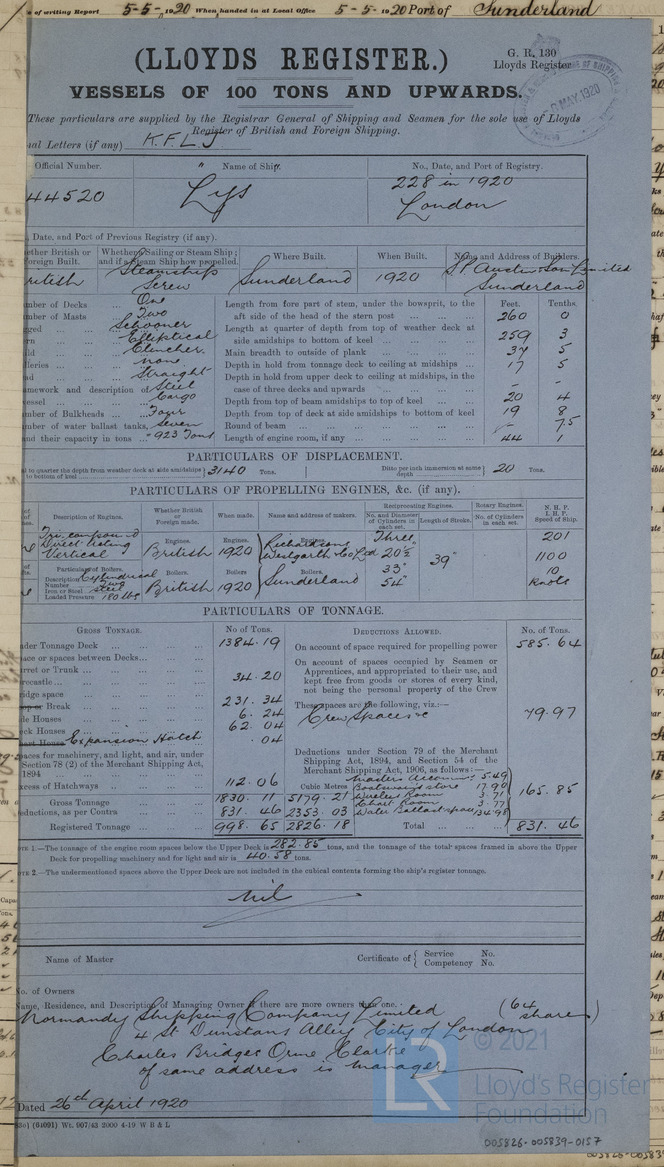 of writing Report 5-5-1920 When handed in at Local Office 5-5-1920 Port of Sunderland
(LLOYDS REGISTER.)
G. R. 130
Lloyds Register
VESSELS OF 100 TONS AND UPWARDS.
MAY. 1920
These particulars are supplied by the Registrar General of Shipping and Seamen for the sole use of Lloyds
Register of British and Foreign Shipping.
nal Letters (if any) K.F.L.J
Official Number. Name of Ship. No., Date, and Port of Registry.
44520 Lys 228 in 1920
London
, Date, and Port of Previous Registry (if any).
ether British or Foreign Built. Whether Sailing or Steam Ship; and if a Steam Ship how propelled. Where Built. When Built. Name and Address of Builders.
ritish Steamship Screw Sunderland 1920 S.P. Austin & Son Limited
Sunderland
mber of Decks One
mber of Masts Two
gged Schooner
rn Elliptical
ild Clincher
lleries none
ad Straight
amework and description of Steel
vessel Cargo
mber of Bulkheads Four
mber of water ballast tanks, Seven
and their capacity in tons 923 Tons
Feet. Tenths.
Length from fore part of stem, under the bowsprit, to the
aft side of the head of the stern post 260 0
Length at quarter of depth from top of weather deck at
side amidships to bottom of keel 259 3
Main breadth to outside of plank 37 5
Depth in hold from tonnage deck to ceiling at midships 17 5
Depth in hold from upper deck to ceiling at midships, in the
case of three decks and upwards - -
Depth from top of beam amidships to top of keel 20 4
Depth from top of deck at side amidships to bottom of keel 19 8
Round of beam - 75
Length of engine room, if any 44 1
PARTICULARS OF DISPLACEMENT.
l to quarter the depth from weather deck at side amidships to bottom of keel 3140 Tons. Ditto per inch immersion at same depth 20 Tons.
PARTICULARS OF PROPELLING ENGINES, &c. (if any).
Description of Engines. Whether British or Foreign made. When made. Name and address of makers. Reciprocating Engines. Rotary Engines. N. H. P.
No. and Diameter of Cylinders in each set. Length of Stroke. No. of Cylinders in each set. I. H. P.
Speed of Ship.
Tri-compound
Direct Acting
Vertical
Engines. British
Engines. 1920
Engines. Richardsons
Westgarth & Co Ltd
Three
20½
33"
54"
39"
201
1100
10
Knots
Particulars of Boilers.
Description Cylindrical
Number Two
Iron or Steel Steel
Loaded Pressure 180 lbs
Boilers. British
Boilers 1920
Boilers. Sunderland
PARTICULARS OF TONNAGE.
GROSS TONNAGE. No of Tons. DEDUCTIONS ALLOWED. No. of Tons.
nder Tonnage Deck 1384.19
ace or spaces between Decks
rret or Trunk
recastle 34.20
ridge space
op or Break 231.34
de Houses 6.24
eck Houses 62.04
hart House Expansion Hatch .04
paces for machinery, and light, and air, under
Section 78 (2) of the Merchant Shipping Act,
1894
xcess of Hatchways 112.06
Cubic Metres
Gross Tonnage 1830.11 5179.21
eductions, as per Contra 831.46 2353.03
Registered Tonnage 998.65 2826.18
On account of space required for propelling power 585.64
On account of spaces occupied by Seamen or
Apprentices, and appropriated to their use, and
kept free from goods or stores of every kind,
not being the personal property of the Crew
These spaces are the following, viz.:—
Crew Spaces 79.97
Deductions under Section 79 of the Merchant
Shipping Act, 1894, and Section 54 of the
Merchant Shipping Act, 1906, as follows:—
Masters Accom 5.49
Boatswains store 17.90
Wireless Room 3.71
Chart Room 3.77
Water Ballast space 134.98
165.85
Total 831.46
OTE 1.—The tonnage of the engine room spaces below the Upper Deck is 282.85 tons, and the tonnage of the total spaces framed in above the Upper
Deck for propelling machinery and for light and air is 40.58 tons.
OTE 2.—The undermentioned spaces above the Upper Deck are not included in the cubical contents forming the ship's register tonnage.
nil
Name of Master Certificate of Service No.
Competency No.
No. of Owners
Name, Residence, and Description of Managing Owner if there are more owners than one.
Normandy Shipping Company Limited (64 shares)
4 St Dunstans Alley City of London
Charles Bridges Orme Clarke
of same address is manager
Dated 26th April 1920
(64091) Wt. 007/43 2000 4-19 W B & L
LR
© 2021
Lloyd's Register
Foundation
005826-005839-0157